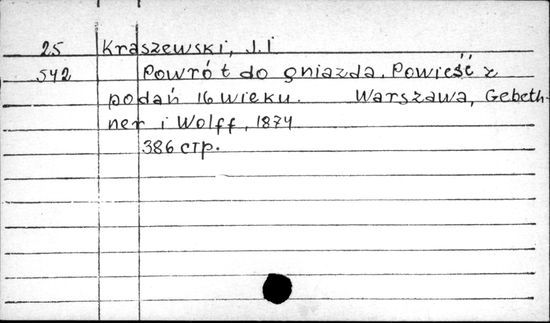 25 Kraszewski, J.I
542 Powrót do gniazda. Powieść z
podań 16 wieku. Warszawa, Gebeth-
ner i Wolff, 1874
386 стр.